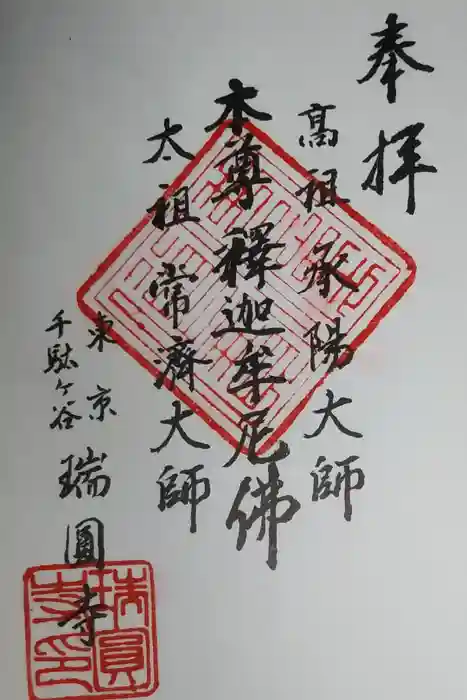 奉拝
高祖承陽大師
本尊釋迦牟尼佛
太祖常濟大師
東京
千駄ヶ谷
瑞圓寺
瑞圓寺印